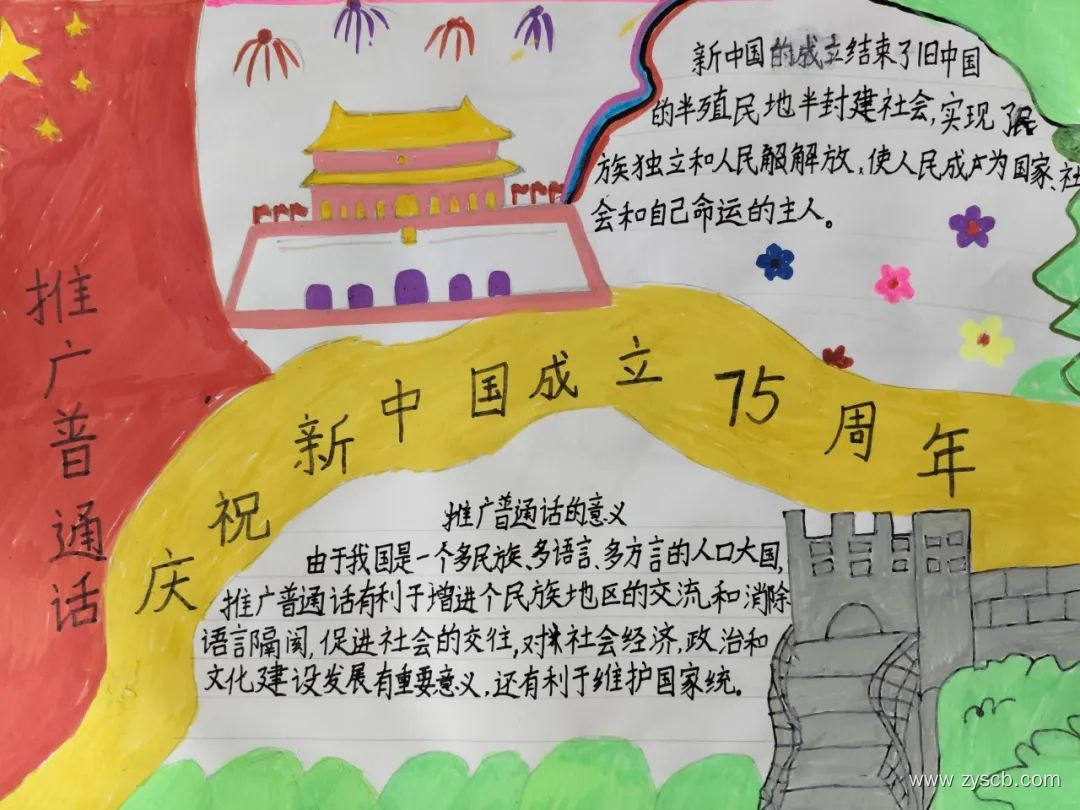 新中国的成立结束了旧中国
的半殖民地半封建社会,实现了民
族独立和人民解放,使人民成为国家、社
会和自己命运的主人。
推广普通话
庆祝新中国成立75周年
推广普通话的意义
由于我国是一个多民族、多语言、多方言的人口大国,
推广普通话有利于增进个民族地区的交流和消除
语言隔阂,促进社会的交往,对社会经济,政治和
文化建设发展有重要意义,还有利于维护国家统。
www.zyscb.com